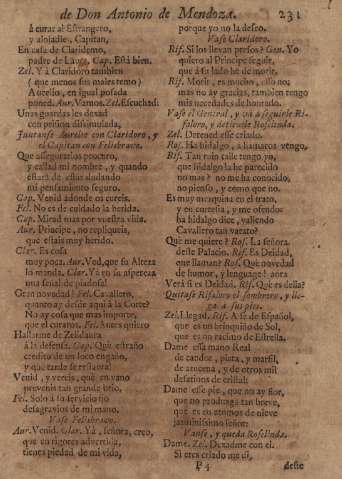 de Don Antonio de Mendoza. 231
à curar al Estrangero,
y alojadle, Capitan,
En casa de Claridemo,
padre de Laura. Cap. Està bien.
Zel. Y à Claridoro tambien
(que menos sus males temo)
Aurelio, en igual posada
poned. Aur. Vamos. Zel. Escuchad:
Unas guardas les dexad
con prision disimulada,
Juntanse Aurelio con Claridoro, y
el Capitan con Felisbravo.
Que assegurarlos procuro,
y callad mi nombre, y quando
estarà de ellos dudando
mi pensamiento seguro.
Cap. Venid adonde os cureis.
Fel. No es de cuidado la herida.
Cap. Mirad mas por vuestra vida.
Aur. Principe, no repliqueis,
que estais muy herido.
Clar. Es cosa
muy poca. Aur. Ved, que su Alteza
lo manda. Clar. Yà en su aspereza
una señal de piadosa!
Gran novedad! Fel. Cavallero,
quanto ay desde aqui à la Corte?
No ay cosa que mas importe,
que el curaros. Fel. Aures quiero
Hallarme de Zelidaura
à la defensa. Cap. Què estraño
credito de un loco engaño,
y que tarde se restaura!
Venid, y vereis, què en vano
prevenis tan grande brio.
Fel. Solo à su servicio fio
desagravios de mi mano.
Vase Felisbravo.
Aur. Venid. Clar. Yà, señora, creo,
que en rigores advertida,
tienes piedad de mi vida,
porque yo no la deseo.
Vase Claridoro.
Rif. Si los llevan presos? Gen. Yo
quiero al Principe seguir,
que à su lado he de morir.
Rif. Morir, es mucho, esso no:
mas no ay gracias, tambien tengo
mis necedades de honrado.
Vase el General, y và à seguirle Rifaloro, y detienele Roselinda.
Zel. Detened esse criado.
Ros. Ha hidalgo, à llamaros vengo.
Rif. Tan ruin talle tengo yo,
que hidalgo la he parecido
no mas? no me ha conocido,
no pienso, y como que no.
Es muy mezquina en el trato,
y en cortesia, y me ofendo:
ha hidalgo dice, valiendo
Cavallero tan varato?
Què me quiere? Ros. La señora
deste Palacio. Rif. Es Deidad,
que llaman? Ros. Què novedad
de humor, y lenguage! aora
Verà si es Deidad. Rif. Què es della?
Quitase Rifaloro el sombrero, y llega à sus pies.
Zel. Llegad. Rif. A fè de Español,
que es un brinquiño de Sol,
que es un racimo de Estrella.
Dame essa mano Real
de candor, plata, y marfil,
de azucena, y de otros mil
desatinos de cristal:
Dame esse pie, que no ay flor,
que no produzga tan breve,
que es en atomos de nieve
jazminissimo señor:
Vanse, y queda Roselinda.
Dame. Zel. Dexadme con el.
Si eres criado me dì,
P4 deste